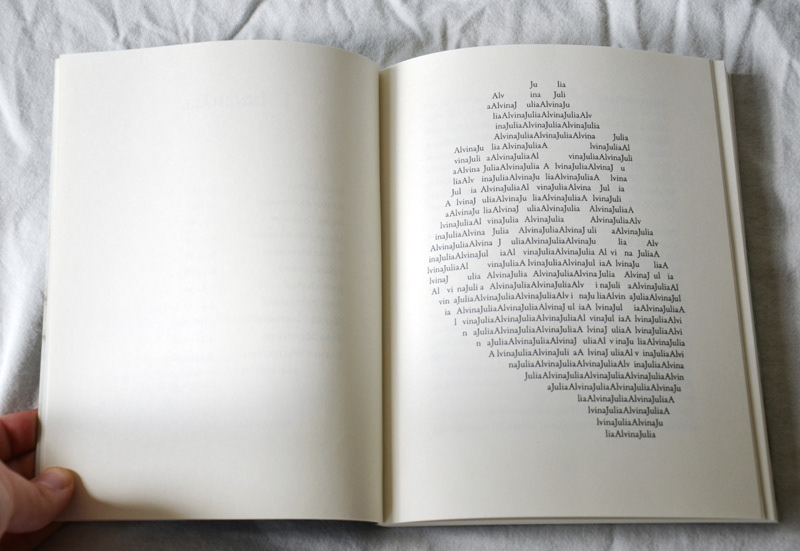 Ju lia
Alv ina Juli
aAlvinaJ uliaAlvinaJu
liaAlvinaJuliaAlvinaJuliaAlv
inaJuliaAlvinaJuliaAlvinaJulia
AlvinaJuliaAlvinaJuliaAlvina Julia
AlvinaJu lia AlvinaJuliaA lvinaJuliaAl
vinaJuli aAlvinaJuliaAl vinaJuliaAlvinaJuli
aAlvina JuliaAlvinaJulia A lvinaJuliaAlvinaJ u
liaAlv inaJuliaAlvinaJu liaAlvinaJuliaA lvina
Jul ia AlvinaJuliaAl vinaJuliaAlvina Jul ia
A lvinaJ uliaAlvinaJu liaAlvinaJuliaA lvinaJuli
aAlvinaJu liaAlvinaJ uliaAlvinaJulia AlvinaJuliaA
lvinaJuliaAl vinaJulia AlvinaJulia AlvinaJuliaAlv
inaJuliaAlvina Julia AlvinaJuliaAlvinaJ uli aAlvinaJulia
AlvinaJuliaAlvina J uliaAlvinaJuliaAlvinaJu lia Alv
inaJuliaAlvinaJul iaAl vinaJuliaAlvinaJulia Al vi na JuliaA
lvinaJuliaAl vinaJuliaA lvinaJuliaAlvinaJul iaA lvinaJu liaA
lvinaJ ulia AlvinaJulia AlvinaJuliaAlvina Julia AlvinaJ ul ia
Al vi naJuli a AlvinaJuliaAlvinaJuliaAlv i naJuli aAlvinaJuliaAl
vin aJuliaAlvinaJuliaAlvinaJuliaAlv i naJu liaAlvin aJuliaAlvinaJul
ia AlvinaJuliaAlvinaJuliaAlvinaJ ul iaA lvinaJul iaAlvinaJuliaA
l vinaJuliaAlvinaJuliaAlvinaJuliaAl vinaJul iaA lvinaJuliaAlvi
n aJuliaAlvinaJuliaAlvinaJuliaA lvinaJ uliaA lvinaJuliaAlvi
n aJuliaAlvinaJuliaAlvinaJ uliaAl v inaJu liaAlvinaJulia
A lvinaJuliaAlvinaJuli aA lvinaJ uliaAl v inaJuliaAlvi
naJuliaAlvinaJuliaAlvinaJuliaAlv inaJuliaAlvina
JuliaAlvinaJuliaAlvinaJuliaAlvinaJuliaAlvin
aJuliaAlvinaJuliaAlvinaJuliaAlvinaJu
liaAlvinaJuliaAlvinaJuliaA
lvinaJuliaAlvinaJuliaA
lvinaJuliaAlvinaJu
liaAlvinaJulia